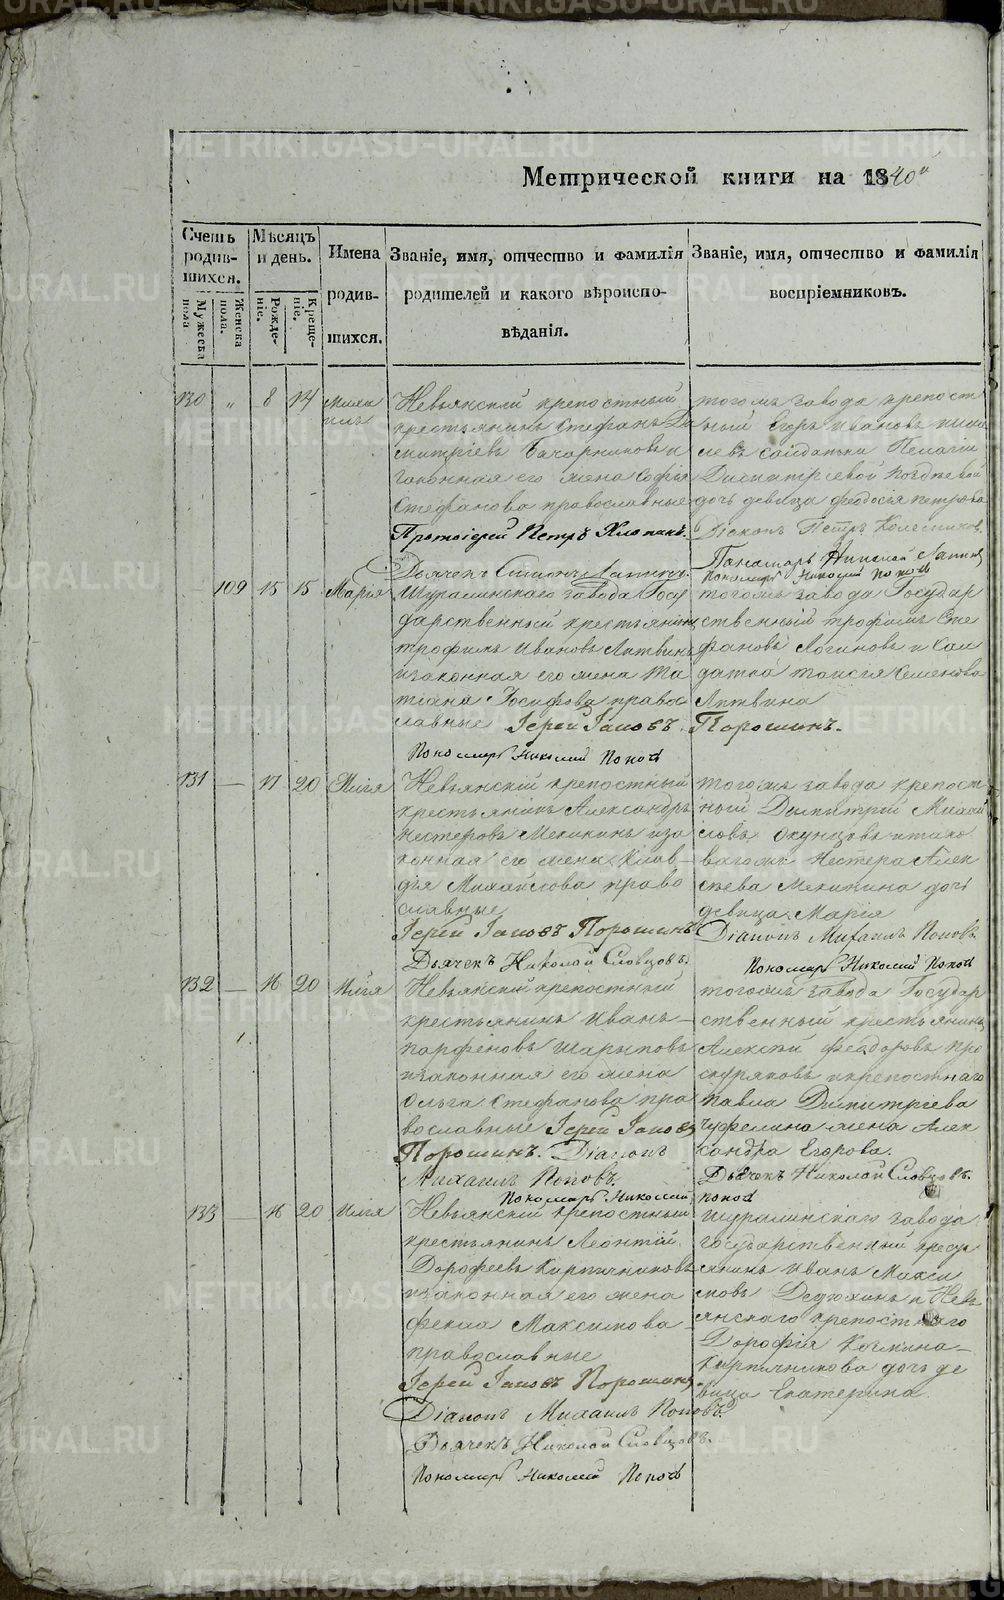 METRIKI.GASU-URAL.RU
Метрической книги на 1840й
Счетъ родив-шихся.
Мужеска пола
Женска пола.
Мѣсяцъ и день.
Рожде-ніе.
Креще-ніе.
Имена родив-шихся.
Званіе, имя, отчество и фамилія родителей и какого вѣроиспо-вѣданія.
Званіе, имя, отчество и фамилія воспріемниковъ.
130 „ 8 14 Миха
илъ
Невьянский крепостный
крестьянинъ Стефанъ Ди
митріевъ и
законная его жена Софія
Стефанова православные
Протоіерей Петръ Хлопинъ.
Дьячекъ Симонъ Лапинъ.
тогожъ завода крепост
ный Егоръ Ивановъ
Пелагіи
Димитріевой
дочь девица Феодосія Петрова
Діаконъ Петръ Колесников
Панамарь Николай Лапин
Пономарь Николай Попов
109 15 15 Марія
Шуралинскаго завода Госу
дарственный крестьянин
Трофимъ Ивановъ Литвинъ
и законная его жена Та
тіана Іосифова право
славные Іерей Іаковъ Порошинъ.
Пономарь Николай Попов
тогожъ завода Государ
ственный Трофимъ Сте
фановъ Логиновъ и Сол
датка Таисія Семенова
Литвина
131 — 17 20 Илія
Невьянскій крепостный
крестьянинъ Александръ
Нестеровъ Мехикинъ и за
конная его жена Клав-
дія Михайлова право
славные
Іерей Іаковъ Порошинъ
Дьячекъ Николай Словцовъ.
тогожъ завода крепост
ный Димитрей Михай
ловъ Окунцовъ и тако
вагожъ Нестера Алек
сѣева Мехикина дочь
девица Марія
Діаконъ Михаилъ Поповъ
Пономарь Николай Попов
132 — 16 20 Илія
Невьянскій крепостный
крестьянинъ Иванъ—
Парфеновъ Шарыповъ
и законная его жена
Ольга Стефанова пра
вославные Іерей Іаковъ
Порошинъ. Діаконъ
Михаилъ Поповъ.
Пономарь Николай Попов
тогожъ завода Государ
ственный крестьянинъ
Алексѣй Феодоровъ Про
скуряковъ и крепостнаго
Павла Димитріева
жена Алек
сандра Егорова.
Дьячекъ Николай Словцовъ.
133 — 16 20 Илія
Невьянскій крепостный
крестьянинъ Леонтій
Дорофеевъ Кирпичниковъ
и законная его жена
Фекла Максимова
православные
Іерей Іаковъ Порошинъ.
Діаконъ Михаилъ Поповъ.
Дьячекъ Николай Словцовъ.
Пономарь Николай Попов
Шуралинскаго завода
государственный крестья
янинъ Иванъ Макси
мовъ Дедюхинъ и Невь
янскаго крепостнаго
Дорофія Козмина—
Кирпичникова дочь де
вица Екатерина.